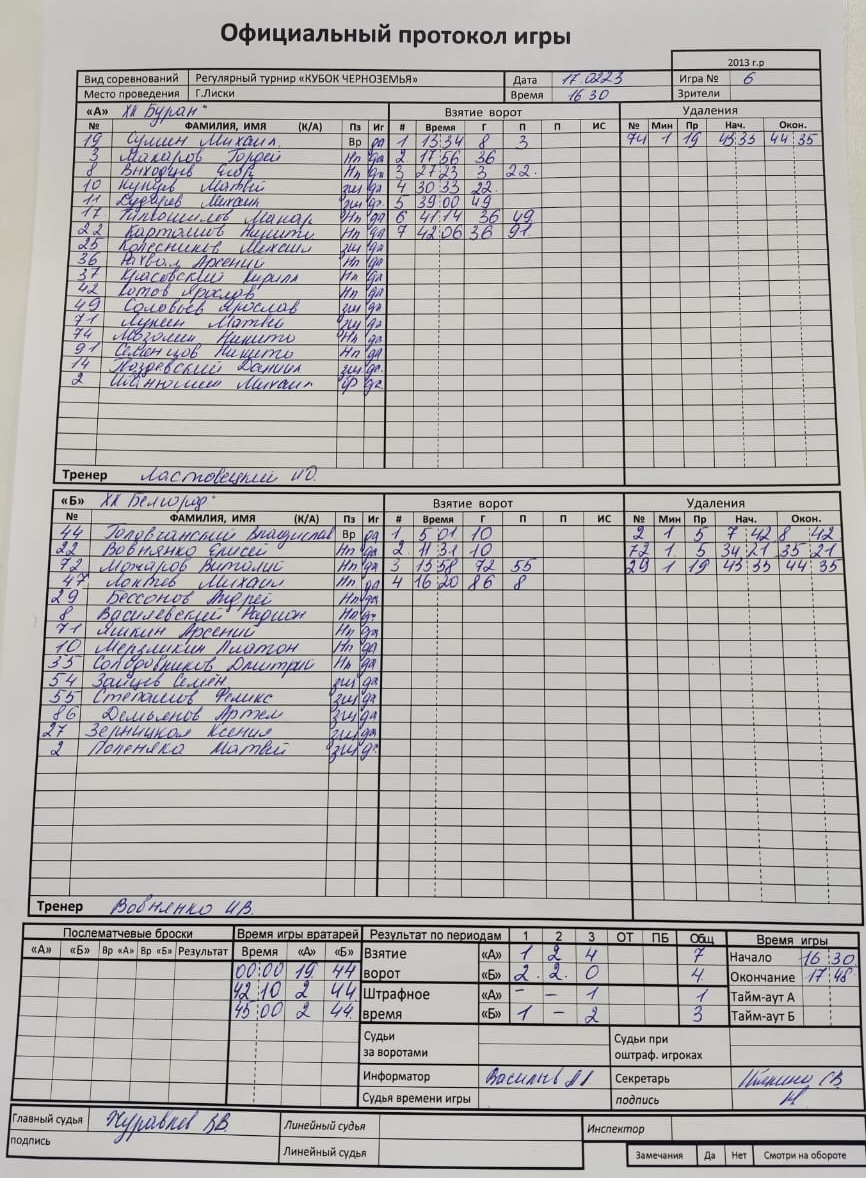 Официальный протокол игры
2013 г.р
Вид соревнований Регулярный турнир «КУБОК ЧЕРНОЗЕМЬЯ» Дата 17.02.23 Игра № 6
Место проведения Г.Лиски Время 16 30 Зрители
«А» ХК Буран" Взятие ворот Удаления
№ ФАМИЛИЯ, ИМЯ (К/А) Пз Иг # Время Г П П ИС № Мин Пр Нач. Окон.
19 Сумин Михаил. Вр да 1 13:34 8 3 74 1 19 43 35 44 35
3 Макаров Гордей Нп да 2 17:56 36
8 Выходцев Егор Нп да 3 27 23 3 22.
10 Матвей зщ да 4 30 33 22.
11 Михаил зщ да 5 39:00 49
17 Макар Нп да 6 41:14 36 49
22 Карташов Никита Нп да 7 42:06 36 91
25 Колесников Михаил зщ да
36 Арсений Нп да
37 Красовский Кирилл Нп да
42 Котов Ярослав Нп да
49 Соловьев Ярослав зщ да
71 Лунин Матвей зщ да
74 Мозолин Никита Нп да
91 Семенцов Никита Нп да
14 Поздевский Даниил зщ да
2 Михаил да
Тренер Ластовецкий
«Б» ХК Белгород" Взятие ворот Удаления
№ ФАМИЛИЯ, ИМЯ (К/А) Пз Иг # Время Г П П ИС № Мин Пр Нач. Окон.
44 Владислав Вр да 1 5 01 10 2 1 5 7 42 8 42
22 Вовнянко Елисей Нп да 2 11 31 10 72 1 5 34 21 35 21
72 Можаров Виталий Нп да 3 15 58 72 55 29 1 19 43 35 44 35
47 Локтев Михаил Нп да 4 16 20 86 8
29 Бессонов Андрей Нп да
8 Василевский Радион Нп да
71 Яшкин Арсений Нп да
10 Мерзликин Платон Нп да
33 Солодовников Дмитрий Нп да
54 Зайцев Семён зщ да
55 Степанов Феликс зщ да
86 Демьянов Артем зщ да
27 Зерницкая Ксения зщ да
2 Попеняка Матвей зщ да
Тренер Вовнянко И.В.
Послематчевые броски Время игры вратарей Результат по периодам 1 2 3 ОТ ПБ Общ Время игры
«А» «Б» Вр «А» Вр «Б» Результат Время «А» «Б» Взятие «А» 1 2 4 7 Начало 16 30
00:00 19 44 ворот «Б» 2 2 0 4 Окончание 17 48
42 10 2 44 Штрафное «А» – – 1 1 Тайм-аут А
45 00 2 44 время «Б» 1 – 2 3 Тайм-аут Б
Судьи за воротами Судьи при оштраф. игроках
Информатор Васильев Секретарь
Судья времени игры подпись
Главный судья Журавлев В.В. Линейный судья Инспектор
подпись Линейный судья Замечания Да Нет Смотри на обороте